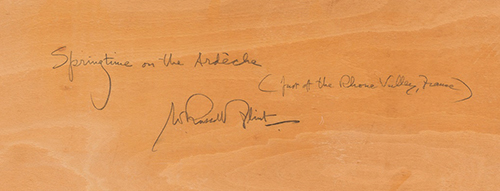 Springtime on the Ardèche
(just at the Rhone Valley, France)
W Russell Flint